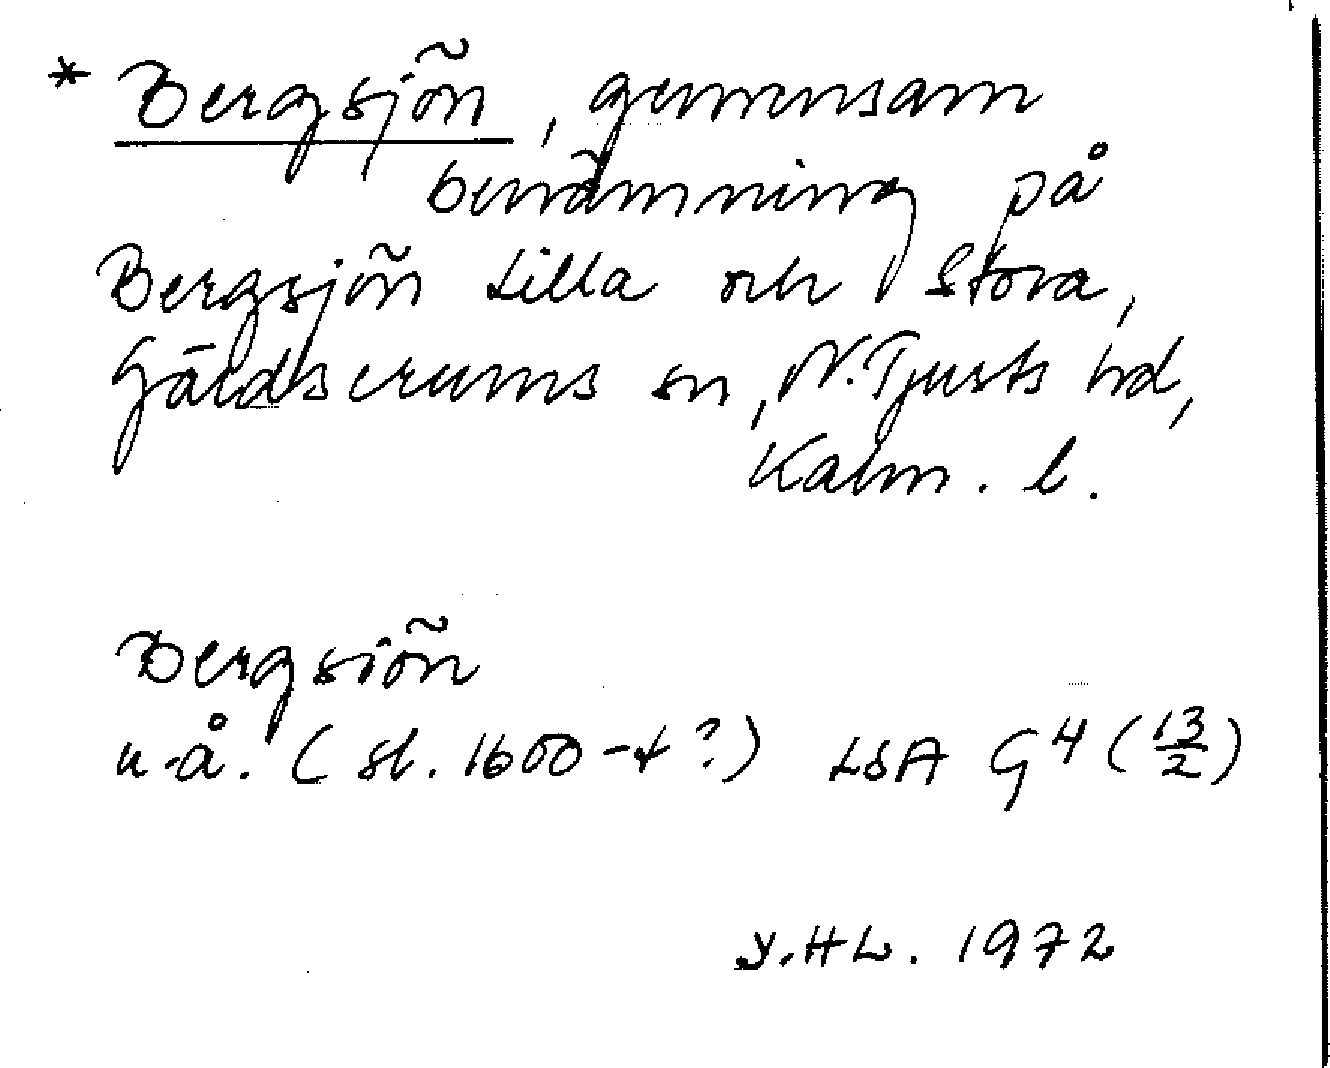 * Bergsjön, gemensam
benämning på
Bergsjön Lilla och Stora,
Gärdserums sn, N. Tjusts hd,
Kalm. l.
Bergsiön
u.å. (sl. 1600-t?) LSA G4 (13/2)
Y.HL. 1972